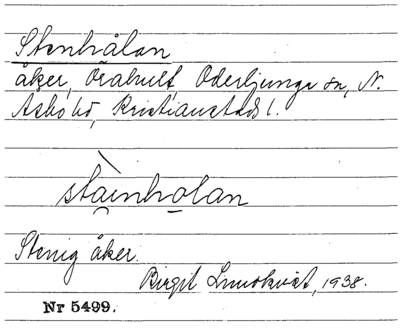 Stenhålan
åker, Örahult Oderljunga sn, N.
Åsbo hd, Kristianstads l.
stainholan
Stenig åker.
Birgit Lundkvist, 1938.
Nr 5499.